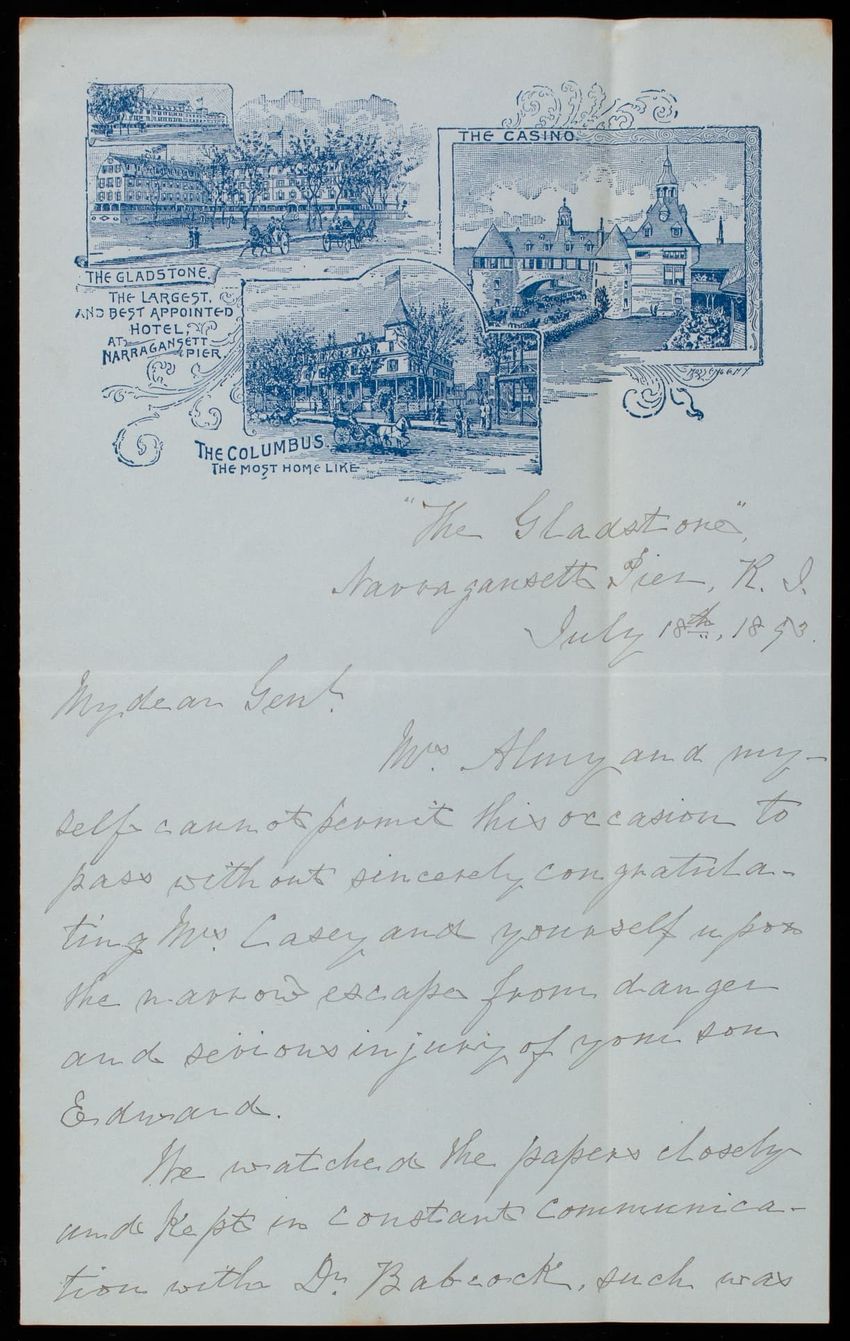 THE GLADSTONE.
THE LARGEST,
AND BEST APPOINTED
HOTEL,
AT
NARRAGANSETT
PIER,
THE CASINO.
THE COLUMBUS
THE MOST HOME LIKE
"The Gladstone",
Narragansett Pier, R. I.
July 18th, 1893.
My dear Genl.
Mrs. Almy and my-
self cannot permit this occasion to
pass without sincerely congratula-
ting Mrs. Casey and yourself upon
the narrow escape from danger
and serious injury of your son
Edward.
We watched the papers closely
and kept in constant communica-
tion with Dr. Babcock, such was